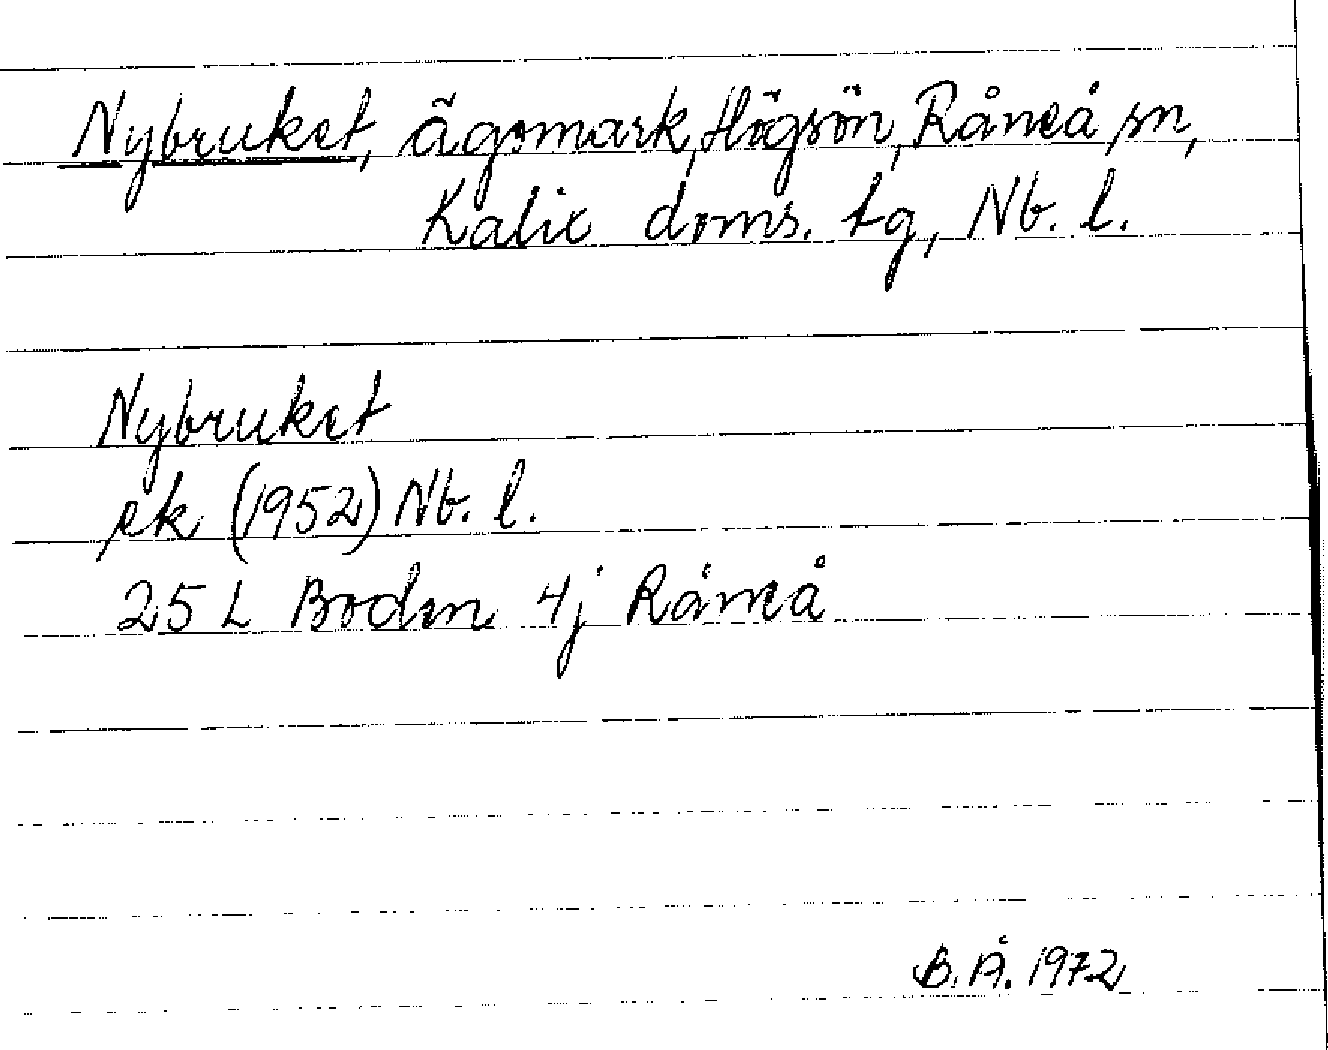 Nybruket, ägomark, Högsön, Råneå sn,
Kalix doms. tg, Nb. l.
Nybruket
ek (1952) Nb. l.
25 L Boden 4j Råneå
B.Å. 1972